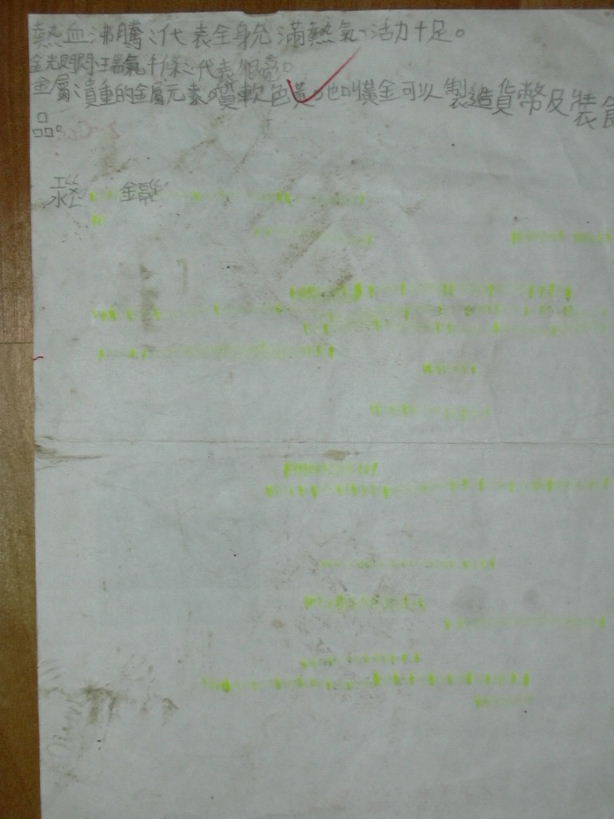 熱血沸騰：代表全身充滿熱氣、活力十足。
金光閃閃瑞氣千條：代表很亮。
金屬：貴重的金屬元素。質軟色黃。也叫黃金可以製造貨幣及裝飾
品。